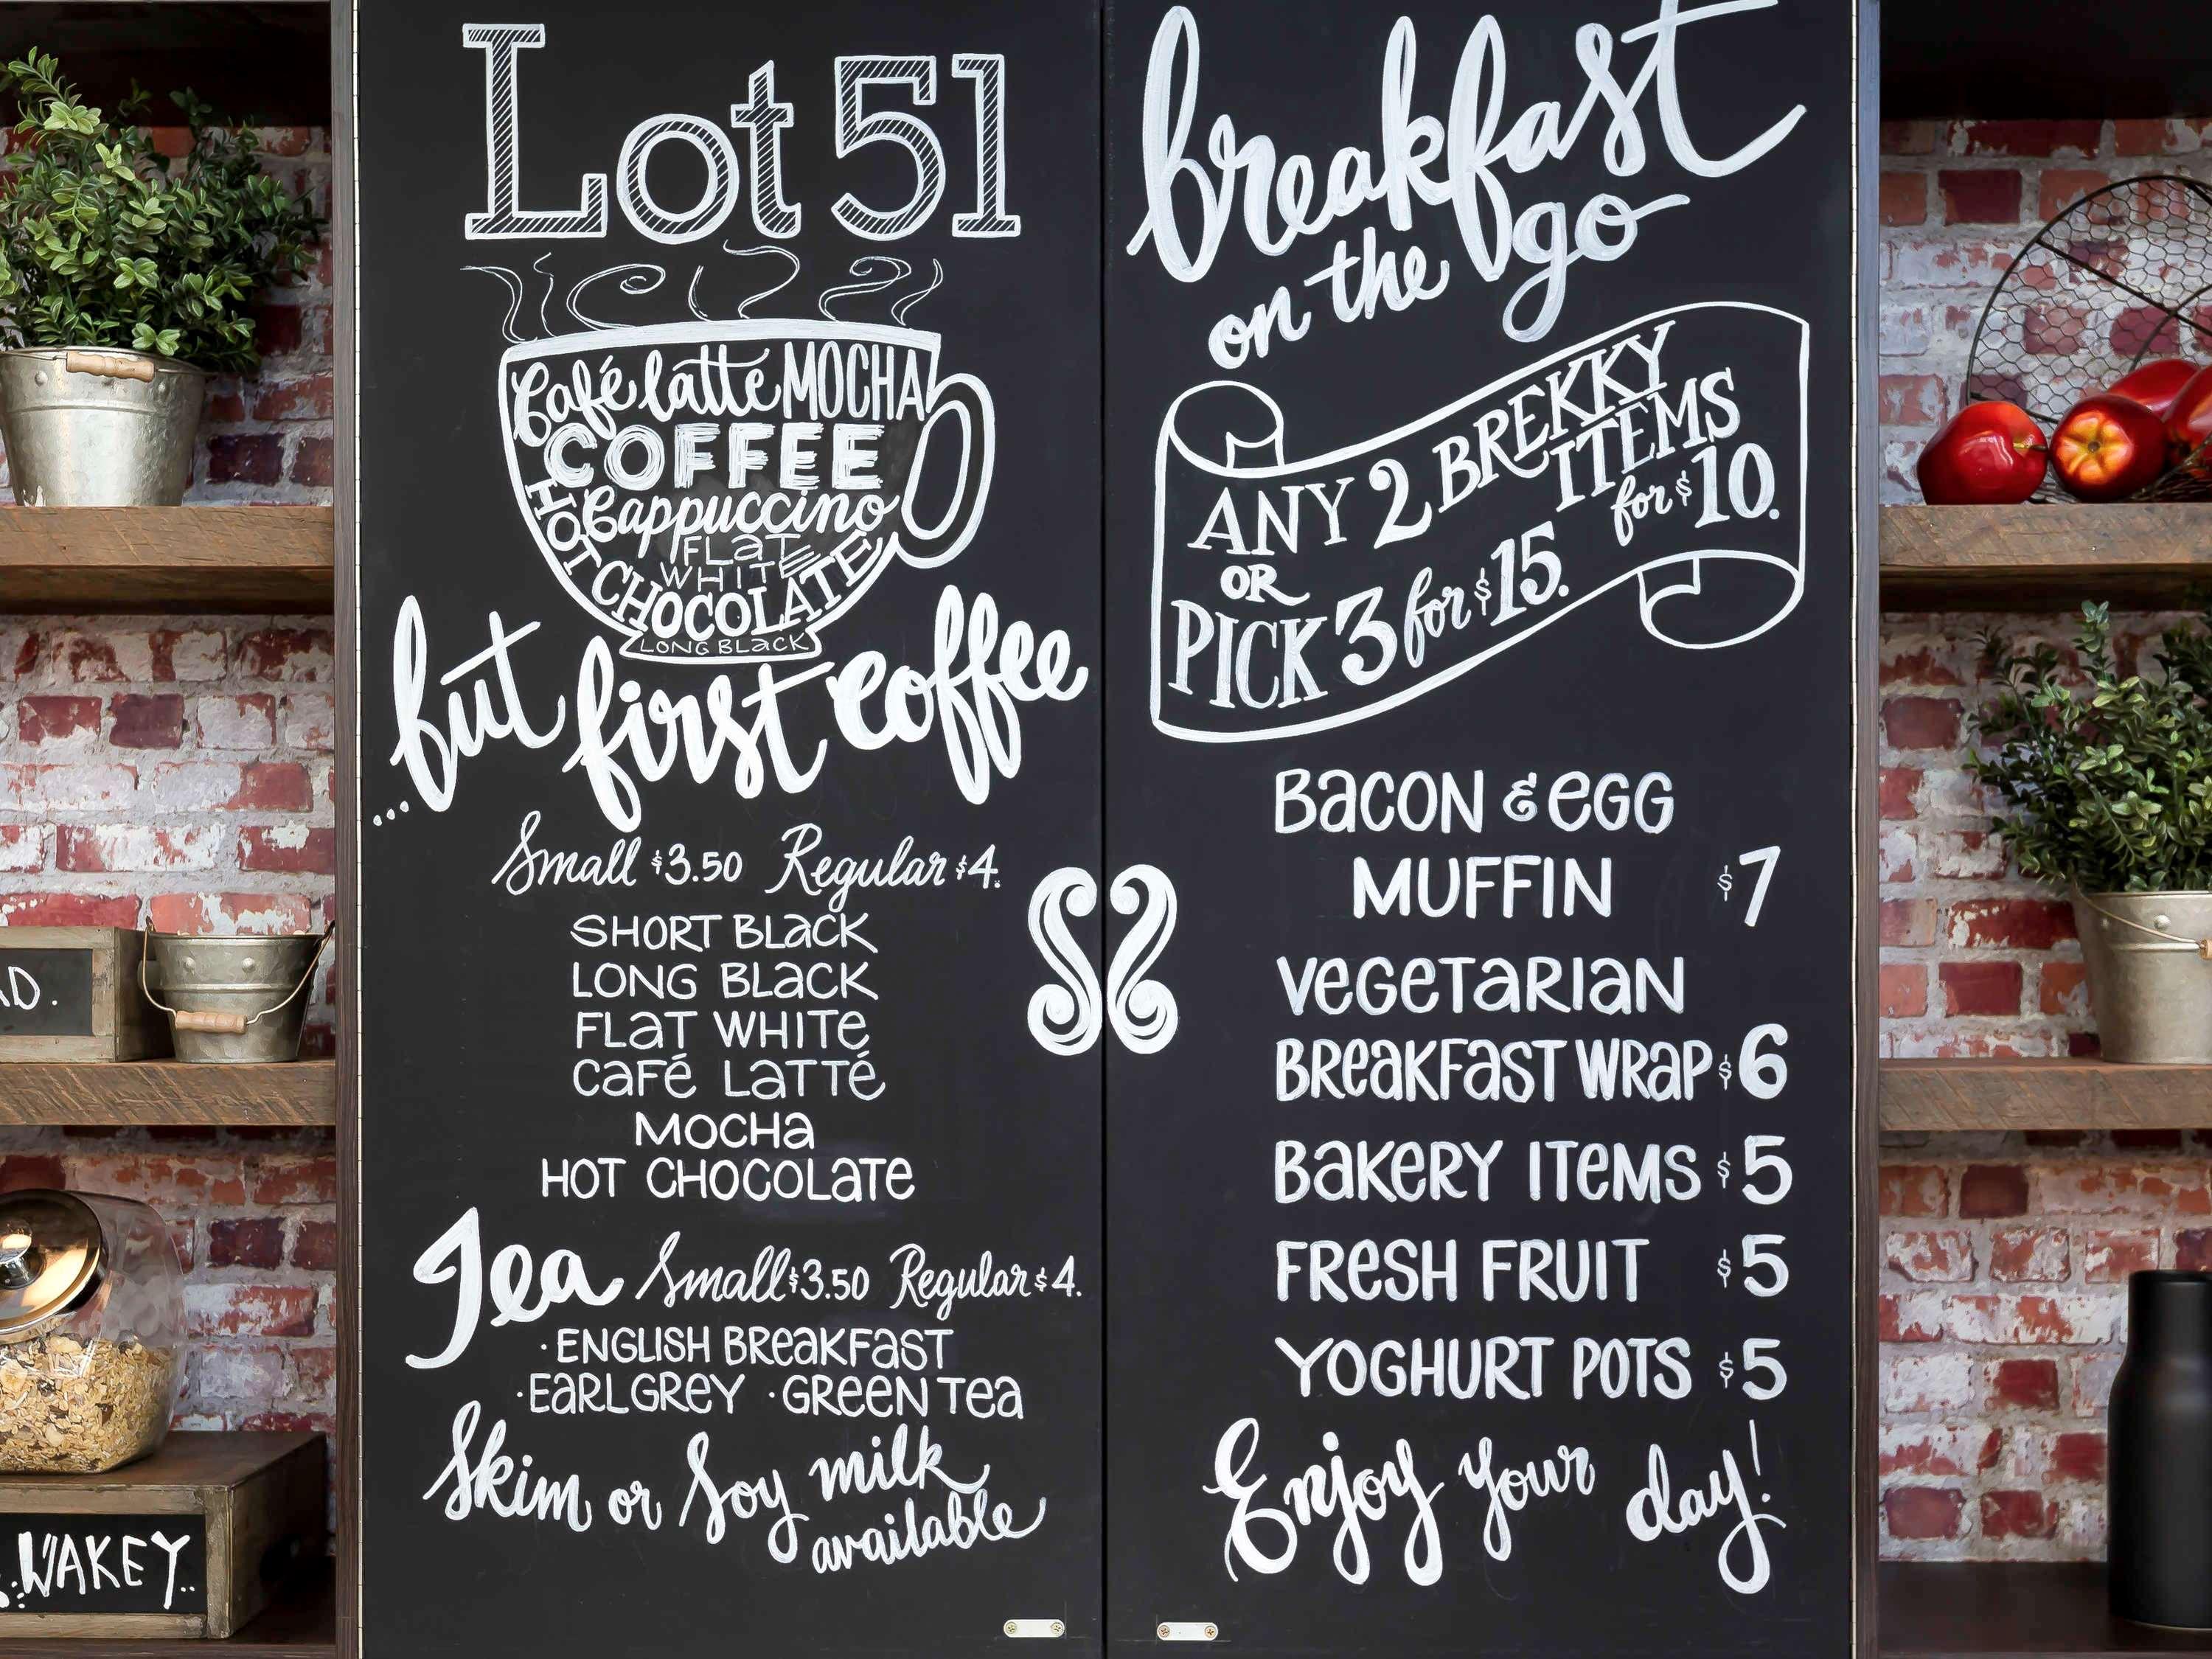 Lot 51
Café latte MOCHA
COFFEE
Cappuccino
FLaT
WHITE
HOT CHOCOLATE
LONG BLaCK
...but first coffee
Small $3.50 Regular $4.
SHORT BLaCK
LONG BLaCK
FLaT WHITe
CaFé LaTTé
MOCHa
HOT CHOCOLaTe
Tea Small $3.50 Regular $4.
· ENGLISH BReaKFaST
· EaRL GReY · GReeN Tea
Skim or Soy milk
available
breakfast
on the go
ANY 2 BREKKY
ITEMS
for $10.
OR
PICK 3 for $15.
BaCON & eGG
MUFFIN $7
VeGeTaRIaN
BReaKFaST WRaP $6
BaKeRY ITeMS $5
FReSH FRUIT $5
YOGHURT POTS $5
Enjoy your day!
D.
WAKEY..